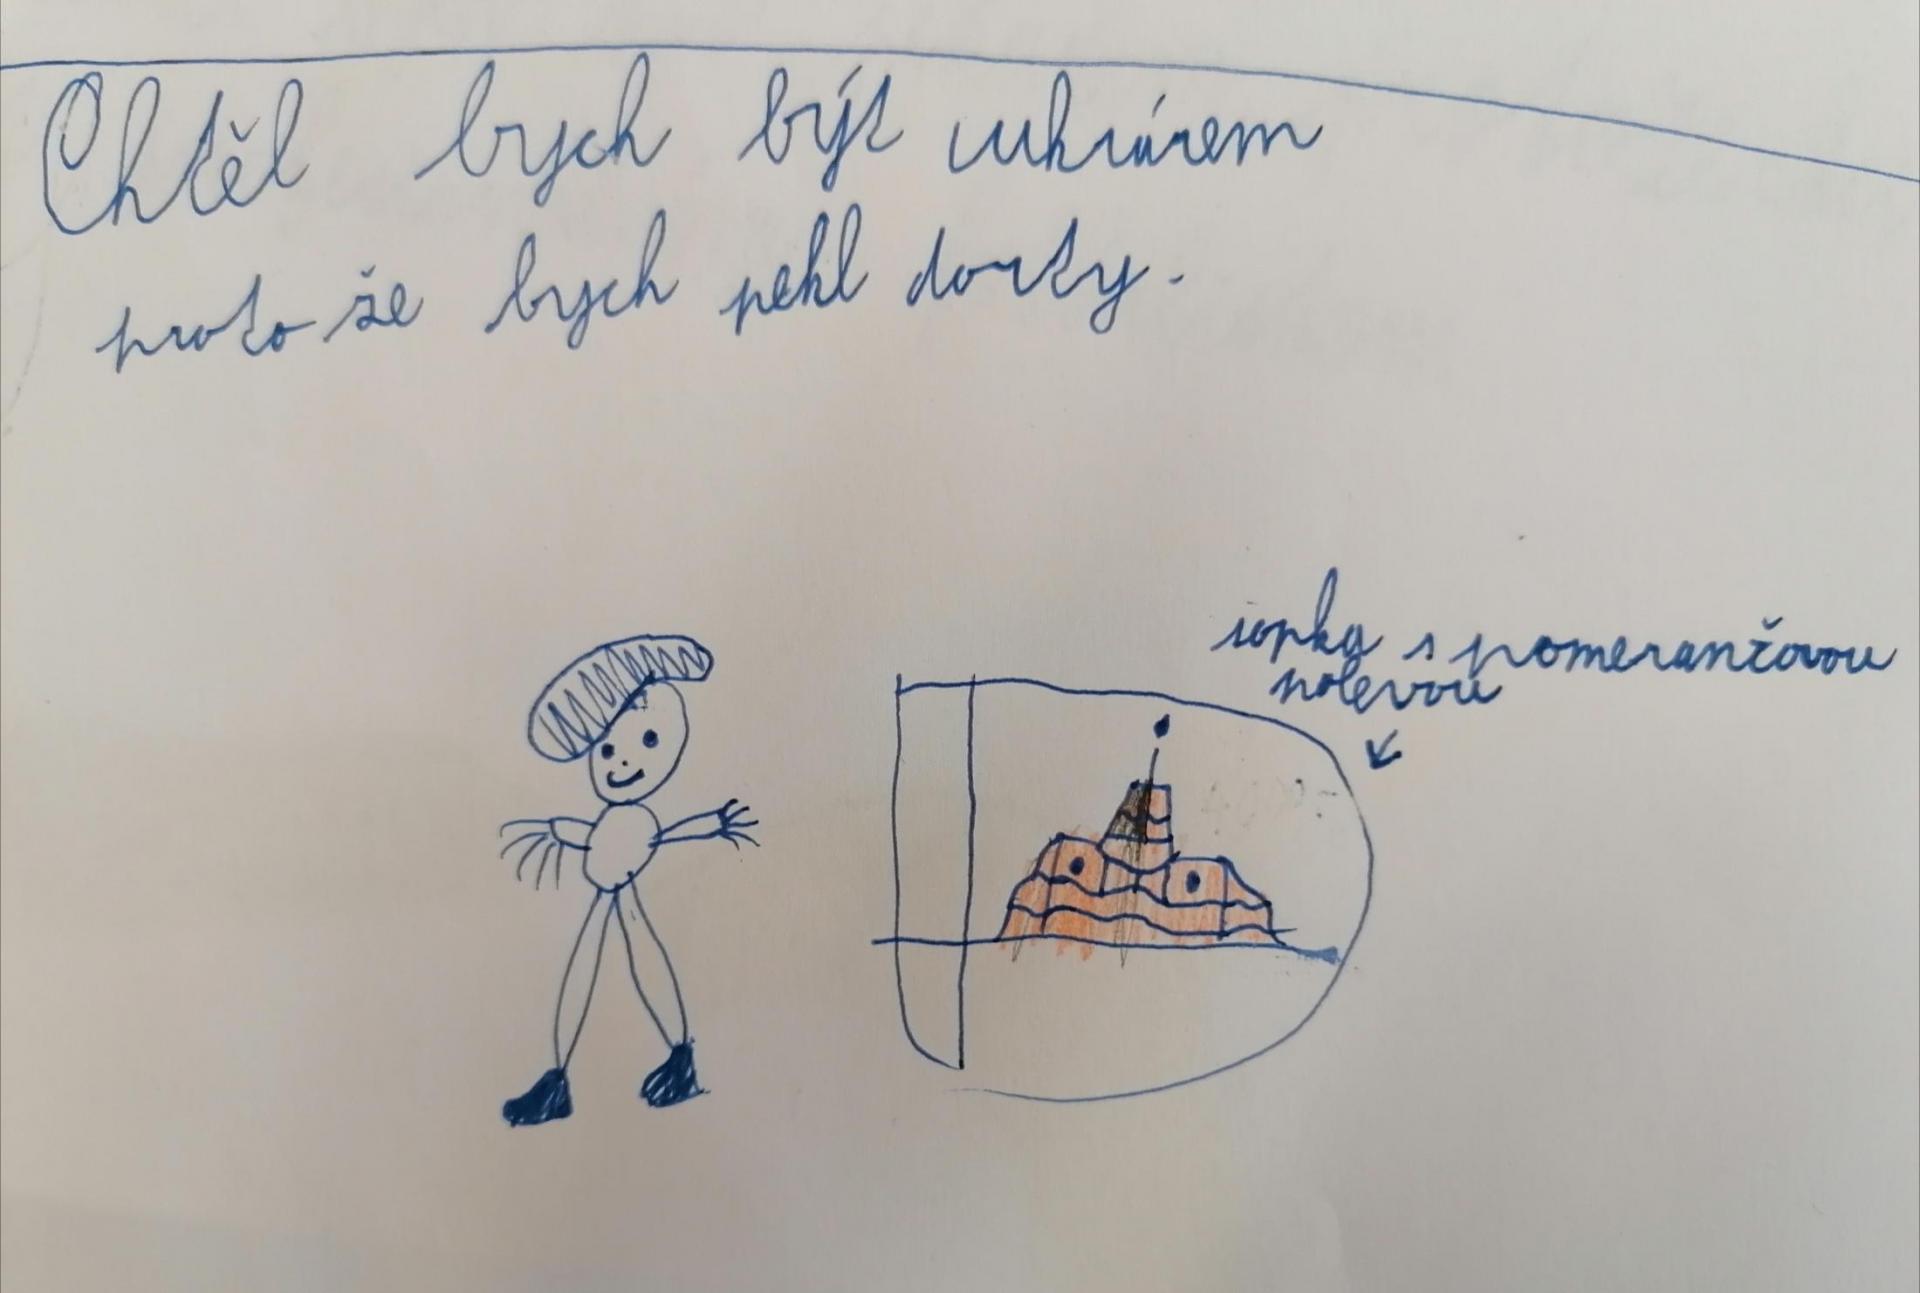 Chtěl bych být cukrárem
proto že bych pekl dorty.
sopka s pomerančovou
polevou